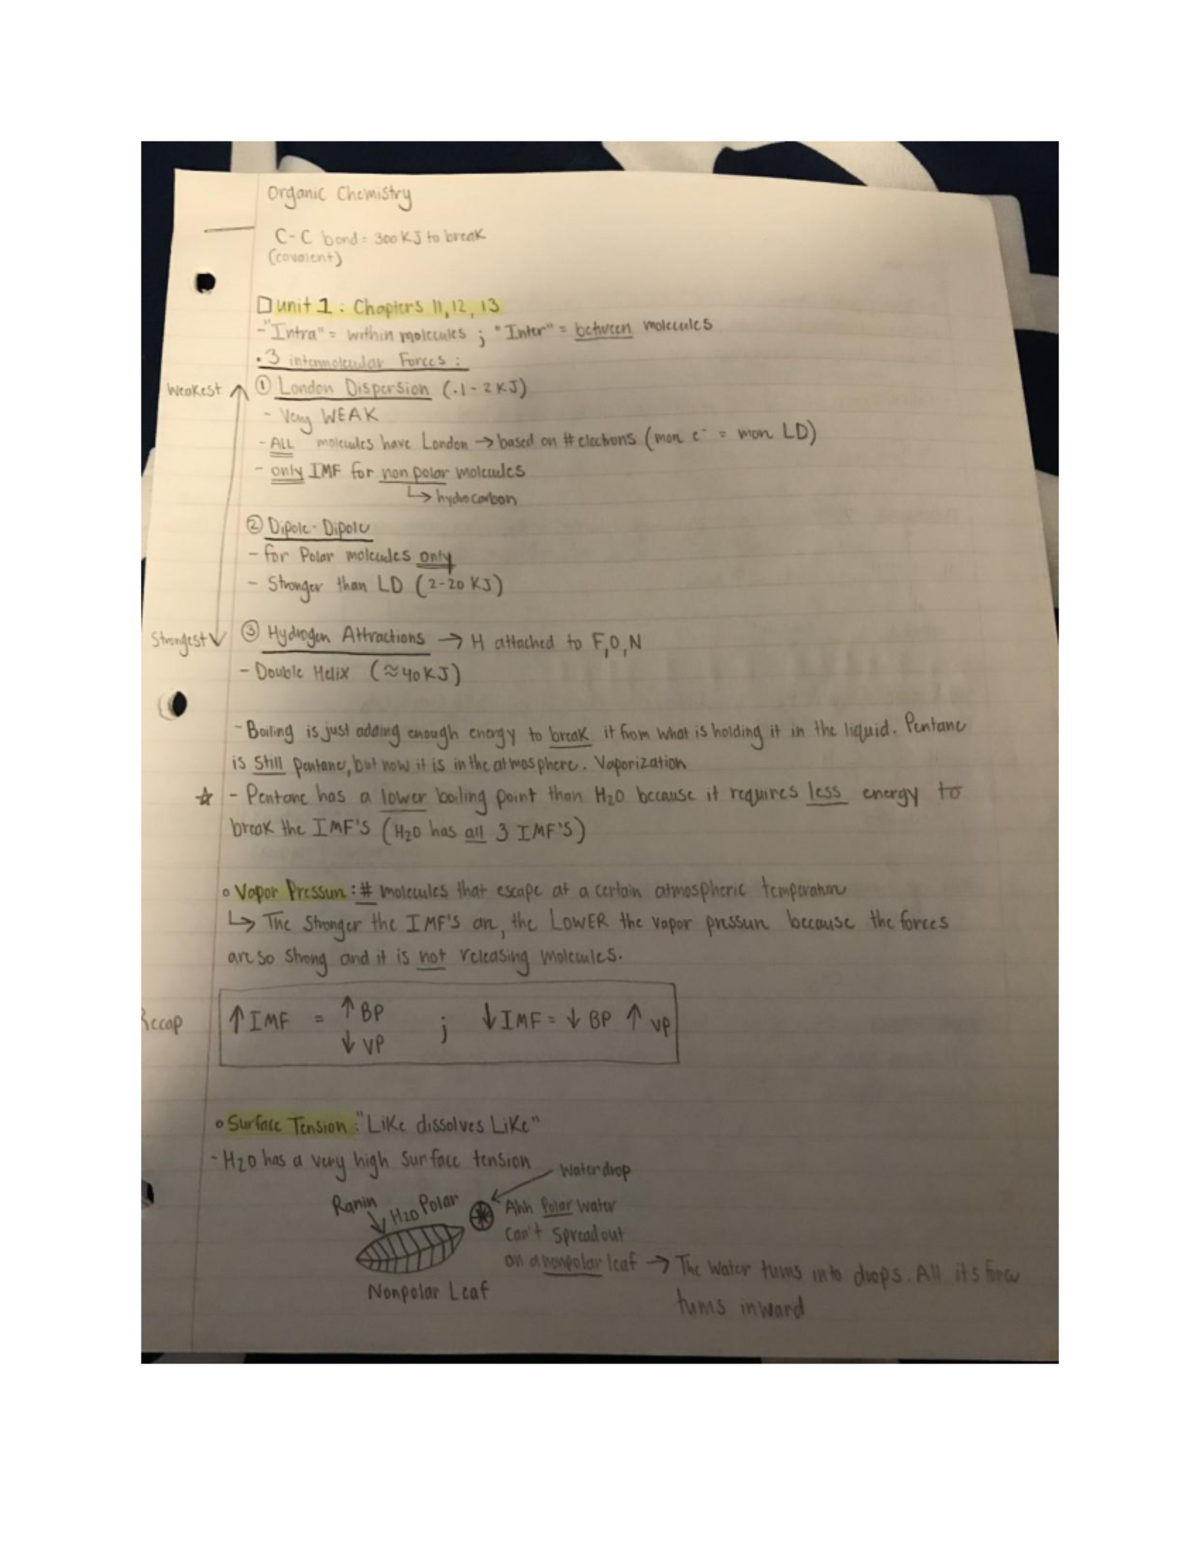 Organic Chemistry
C-C bond = 300 KJ to break
(covalent)
unit 1: Chapters 11, 12, 13
-"Intra" = within molecules ; "Inter" = between molecules
• 3 intermolecular Forces:
Weakest ↑ ① London Dispersion (.1-2 KJ)
- Very WEAK
- ALL molecules have London → based on # electrons (more e⁻ = more LD)
- only IMF for non polar molecules
↳ hydrocarbon
② Dipole-Dipole
- for Polar molecules only
- Stronger than LD (2-20 KJ)
Strongest ↓ ③ Hydrogen Attractions → H attached to F,O,N
- Double Helix (≈40KJ)
- Boiling is just adding enough energy to break it from what is holding it in the liquid. Pentane
is still pentane, but now it is in the atmosphere. Vaporization
☆ - Pentane has a lower boiling point than H2O because it requires less energy to
break the IMF'S (H2O has all 3 IMF'S)
∘ Vapor Pressure: # molecules that escape at a certain atmospheric temperature
↳ The Stronger the IMF'S are, the LOWER the vapor pressure because the forces
are so strong and it is not releasing molecules.
Recap ↑IMF = ↑BP ↓VP ; ↓IMF = ↓BP ↑VP
∘ Surface Tension: "Like dissolves Like"
- H2O has a very high surface tension
Water drop
Ranin
H2O Polar
Ahh Polar water
can't spread out
on a nonpolar leaf → The water turns into drops. All its force
turns inward
Nonpolar Leaf